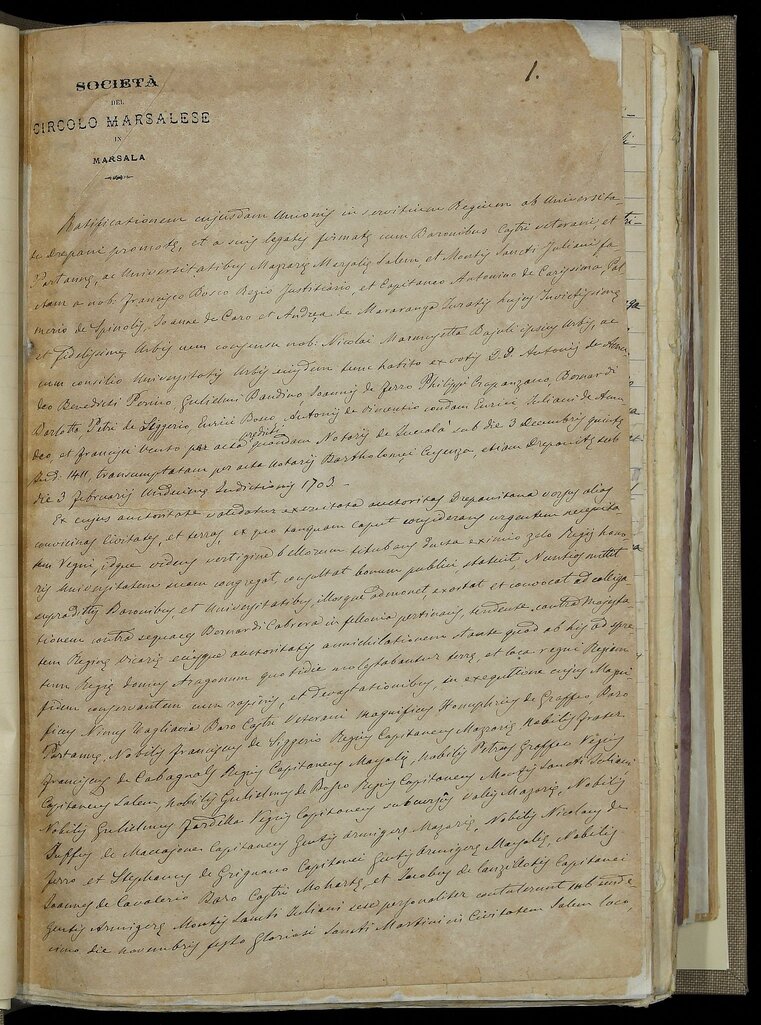 1.
SOCIETÀ
DEL
CIRCOLO MARSALESE
IN
MARSALA
Ratificationem cujusdam Unionis in servitium Reginem ab Universita
te Drepani promotę, et a suis legatis firmatę cum Baronibus Castri veterani, et
Partannę, ac Universitatibus Mazarię Marsalię Salem et Montis Sancti Juliani fa
ctam a nob. Francisco Bosco Regio Justitiario, et Capitaneo Antonino de Carissimo, Pal
merio de Spinolis, Joanne de Caro et Andrea de Mararanga Juratis hujus Invictissimę
et fidelissimę Urbis cum consensu nob. Nicolai Marmusetta Bajuli ipsius Urbis, ac
cum consilio Universitatis Urbis ejusdem tunc habito ex votis D.D. Antonii de
deo Benedicti Perino, Gulielmi Baudino, Joannis de Ferro Philippi Crapanzano, Bernardi
Barlotta, Petri de Siggerio, Enrici Bosco, Antonij de Vincentio condam Enrici, Juliani de Ann
deo, et Francisci Vento per acta quondam Notarij de sub die 3 Decembris quintę
Ind. 1411, transumptatam per acta Notarij Bartholomei Cusenza, etiam Drepanitę sub
die 3 Februarij Undecimę Indictionis 1703 –
Ex cujus auctoritate validatur exercitata auctoritas Drepanitana versus alias
convicinas Civitates, et terras, ex quo tanquam caput considerans urgentem necessita
tem Regni, isque videns vertigine bellorum titubans Justa eximio zelo Regij hono
ris Universitatem suam congregat, consultat bonum publici statuit, Nuntios mittit
supradittis Baronibus, et Universitatibus, illosque admonet exortat et convocat ad colliga
tionem contra sequaces Bernardi Cabrera in fellonia pertinacis, tendente contra Majesta
tem Reginę Vicarię ejusque auctoritatis annichilationem stante quod ab his ad spre
tum Regię domus Aragonum quotidie molestabantur terrę, et loca regni Regiam
fidem conservantem cum rapinis, et devastationibus, in exequtione cujus Magni
ficus Ninus Tagliavia Baro Castri Veterani Magnificus Homphrius de Graffeo, Baro
Partannę, Nobilis Franciscus de Siggerio Regius Capitaneus Mazarię Nobilis Frater
Franciscus de Cabagnolis Regius Capitaneus Marsalię, Nobilis Petrus Graffeo Regius
Capitaneus Salem, Nobilis Gulielmus de Bosco Regius Capitaneus Montis Sancti Juliani
Nobilis Gulielmus Fardella Regius Capitaneus Vallis Mazarię, Nobilis
de Maccajone Capitaneus Gentis Armigerę Mazarię, Nobilis Nicolaus de
Ferro et Stephanus de Grignano Capitanei Gentis Armigerę Marsalię, Nobilis
Joannes de Cavalerio Baro Castri Mohartę, et Jacobus de Capitanei
Gentis Armigerę Montis Sancti Juliani sese personaliter contulerunt sub unde
cimo die novembris festo Gloriosi Sancti Martini in Civitatem Salem loco,